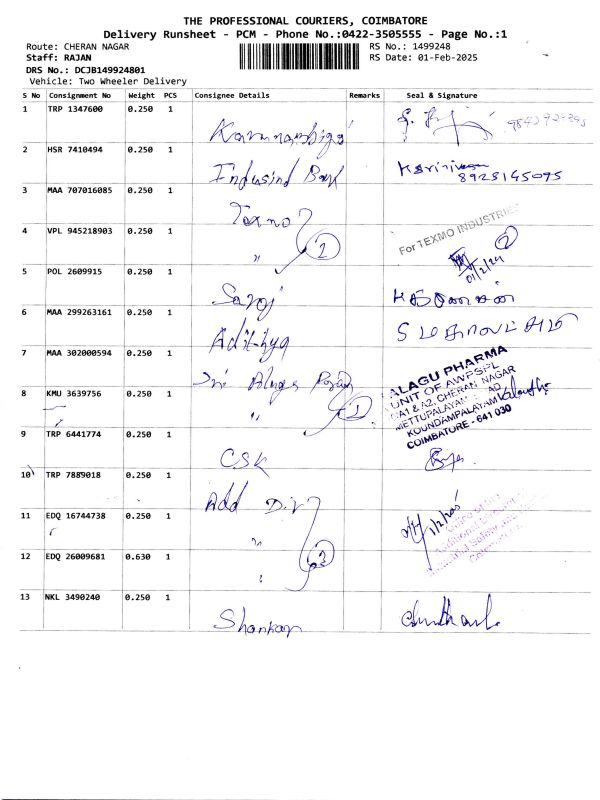 THE PROFESSIONAL COURIERS, COIMBATORE
Delivery Runsheet - PCM - Phone No.:0422-3505555 - Page No.:1
Route: CHERAN NAGAR RS No.: 1499248
Staff: RAJAN RS Date: 01-Feb-2025
DRS No.: DCJB149924801
Vehicle: Two Wheeler Delivery
S No Consignment No Weight PCS Consignee Details Remarks Seal & Signature
1 TRP 1347600 0.250 1
2 HSR 7410494 0.250 1 Indusind Bank 8925145095
3 MAA 707016085 0.250 1 Texmo For TEXMO INDUSTRIES
4 VPL 945218903 0.250 1 " 2 2
01/2/24
5 POL 2609915 0.250 1 Saroj
6 MAA 299263161 0.250 1 Adithya
7 MAA 302000594 0.250 1 Sri ALAGU PHARMA
UNIT OF AWPSPL
CHERAN NAGAR
8 KMU 3639756 0.250 1 " METTUPALAYAM ROAD
KOUNDAMPALAYAM
COIMBATORE - 641 030
9 TRP 6441774 0.250 1 CSK
10 TRP 7889018 0.250 1 Add
11 EDQ 16744738 0.250 1 "
12 EDQ 26009681 0.630 1 " 3
13 NKL 3490240 0.250 1 Shankar